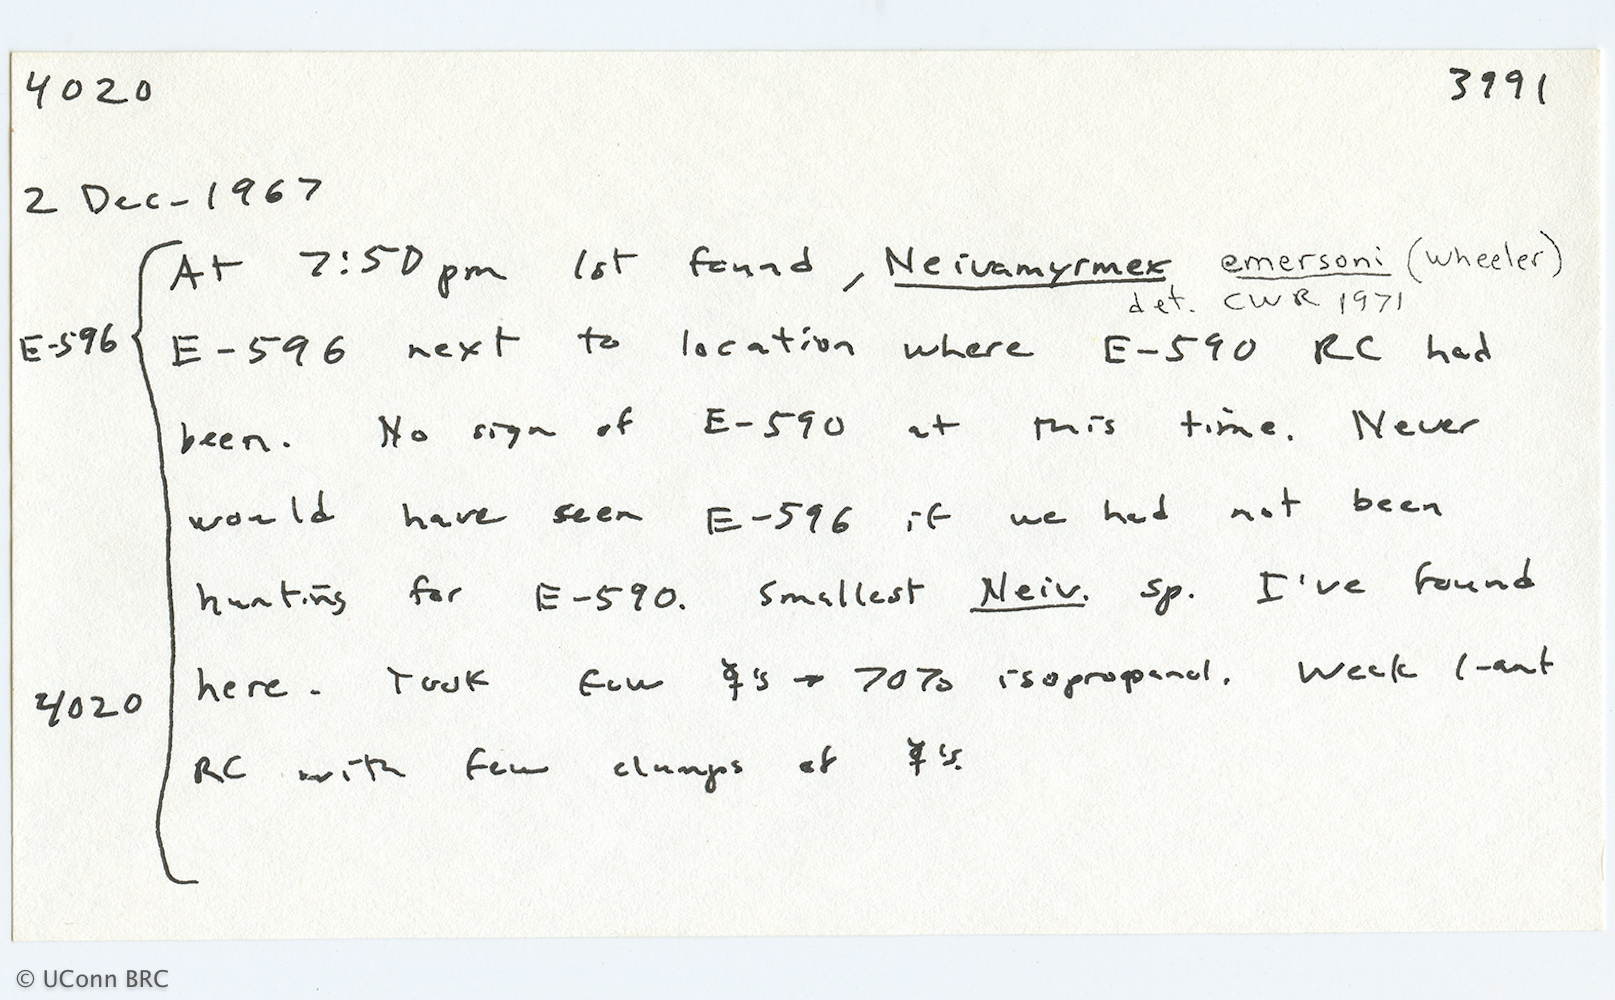 4020 3991
2 Dec-1967
At 7:50 pm 1st found, Neivamyrmex emersoni (wheeler)
det. CWR 1971
E-596 E-596 next to location where E-590 RC had
been. No sign of E-590 at this time. Never
would have seen E-596 if we had not been
hunting for E-590. Smallest Neiv. sp. I've found
here. Took few ☿'s → 70% isopropanol. Weak 1-ant
4020
RC with few clumps of ☿'s.
© UConn BRC